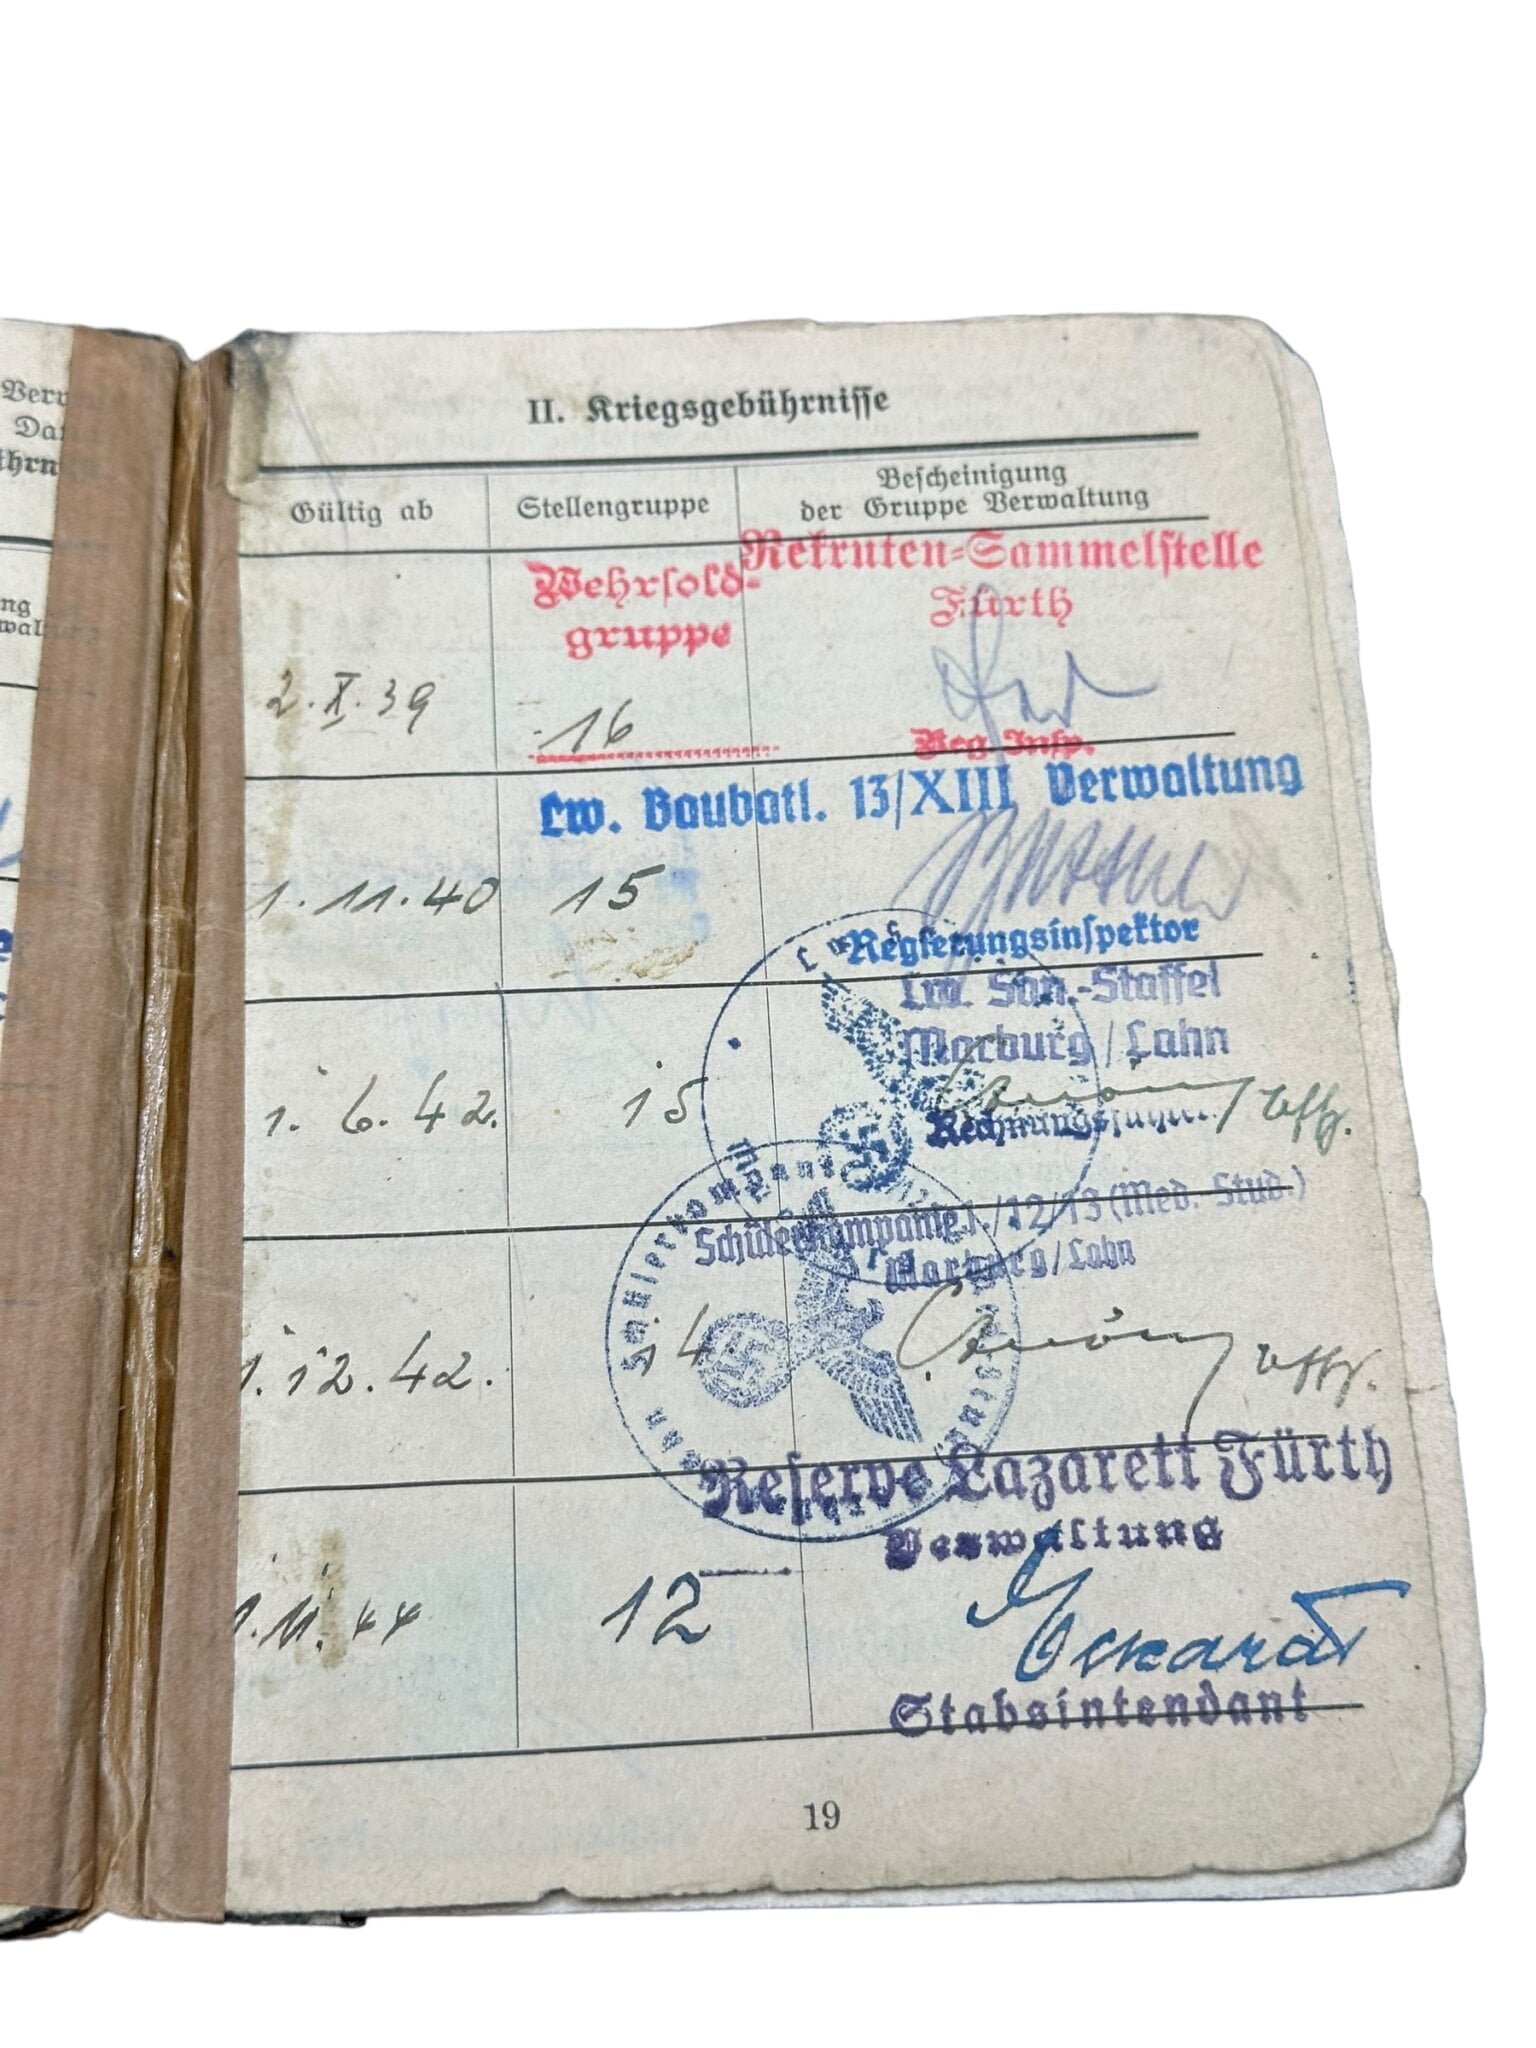 Verw
Da
ührn
ng
wal
II. Kriegsgebührnisse
Gültig ab
Stellengruppe
Bescheinigung
der Gruppe Verwaltung
Rekruten-Sammelstelle
Fürth
Wehrsold-
gruppe
2.X.39
16
Reg. Insp.
Lw. Baubatl. 13/XIII Verwaltung
1.11.40
15
Regierungsinspektor
Lw. San.-Staffel
Marburg/Lahn
1.6.42.
15
Rechnungsführer
Uffz.
Schülerkompanie 1./12/13 (Med. Stud.)
Marburg/Lahn
Schülerkompanie
1.12.42.
14.
Uffz.
Reserve Lazarett Fürth
Verwaltung
1.11.44
12
Eckardt
Stabsintendant
19